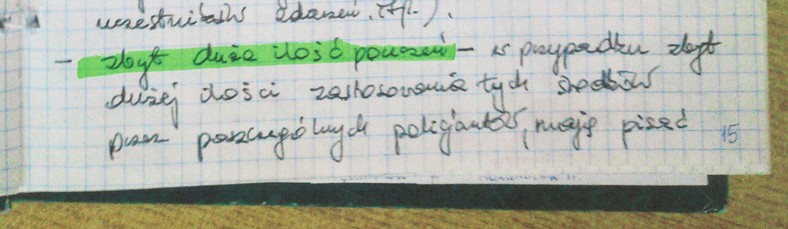 uczestników zdarzeń, itp.).
- zbyt duża ilość pouczeń - w przypadku zbyt
dużej ilości zastosowania tych środków
przez poszczególnych policjantów, mają pisać
15